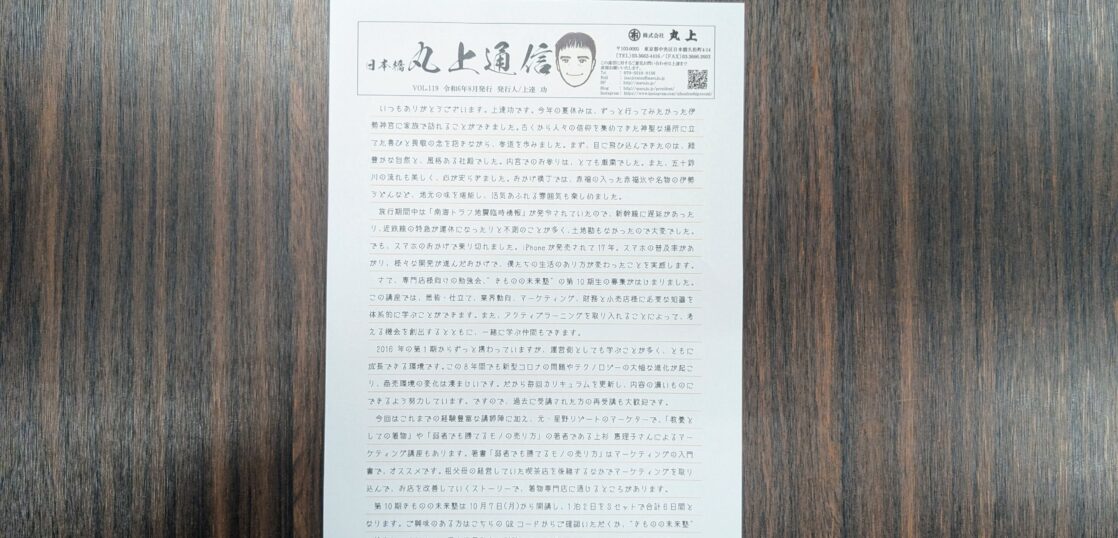 日本橋 丸上通信
VOL.119 令和6年8月発行 発行人/上達 功
株式会社 丸上
〒103-0005 東京都中央区日本橋久松町4-14
[TEL]03-3662-4416/[FAX]03-3666-2603
いつもありがとうございます。上達功です。今年の夏休みは、ずっと行ってみたかった伊
勢神宮に家族で訪れることができました。古くから人々の信仰を集めてきた神聖な場所に立
てた喜びと畏敬の念を抱きながら、参道を歩みました。まず、目に飛び込んできたのは、緑
豊かな自然と、風格ある社殿でした。内宮でのお参りは、とても厳粛でした。また、五十鈴
川の流れも美しく、心が安らぎました。おかげ横丁では、赤福の入った赤福氷や名物の伊勢
うどんなど、地元の味を堪能し、活気あふれる雰囲気も楽しめました。
旅行期間中は「南海トラフ地震臨時情報」が発令されていたので、新幹線に遅延があった
り、近鉄線の特急が運休になったりと不測のことが多く、土地勘もなかったので大変でした。
でも、スマホのおかげで乗り切れました。iPhoneが発売されて17年。スマホの普及率があ
がり、様々な開発が進んだおかげで、僕たちの生活のあり方が変わったことを実感します。
さて、専門店様向けの勉強会、"きものの未来塾"の第10期生の募集がはじまりました。
この講座では、悉皆・仕立て、業界動向、マーケティング、財務と小売店様に必要な知識を
体系的に学ぶことができます。また、アクティブラーニングを取り入れることによって、考
える機会を創出するとともに、一緒に学ぶ仲間もできます。
2016年の第1期からずっと携わっていますが、運営側としても学ぶことが多く、ともに
成長できる環境です。この8年間でも新型コロナの問題やテクノロジーの大幅な進化が起こ
り、商売環境の変化は凄まじいです。だから毎回カリキュラムを更新し、内容の濃いものに
できるよう努力しています。ですので、過去に受講された方の再受講も大歓迎です。
今回はこれまでの経験豊富な講師陣に加え、元・星野リゾートのマーケターで、「教養と
しての着物」や「弱者でも勝てるモノの売り方」の著者である上杉 惠理子さんによるマー
ケティング講座もあります。著書「弱者でも勝てるモノの売り方」はマーケティングの入門
書で、オススメです。祖父母の経営していた喫茶店を後継するなかでマーケティングを取り
込んで、お店を改善していくストーリーで、着物専門店に通ずるところがあります。
第10期きものの未来塾は10月7日(月)から開講し、1泊2日を3セットで合計6日間と
なります。ご興味のある方はこちらのQRコードからご確認いただくか、"きものの未来塾"